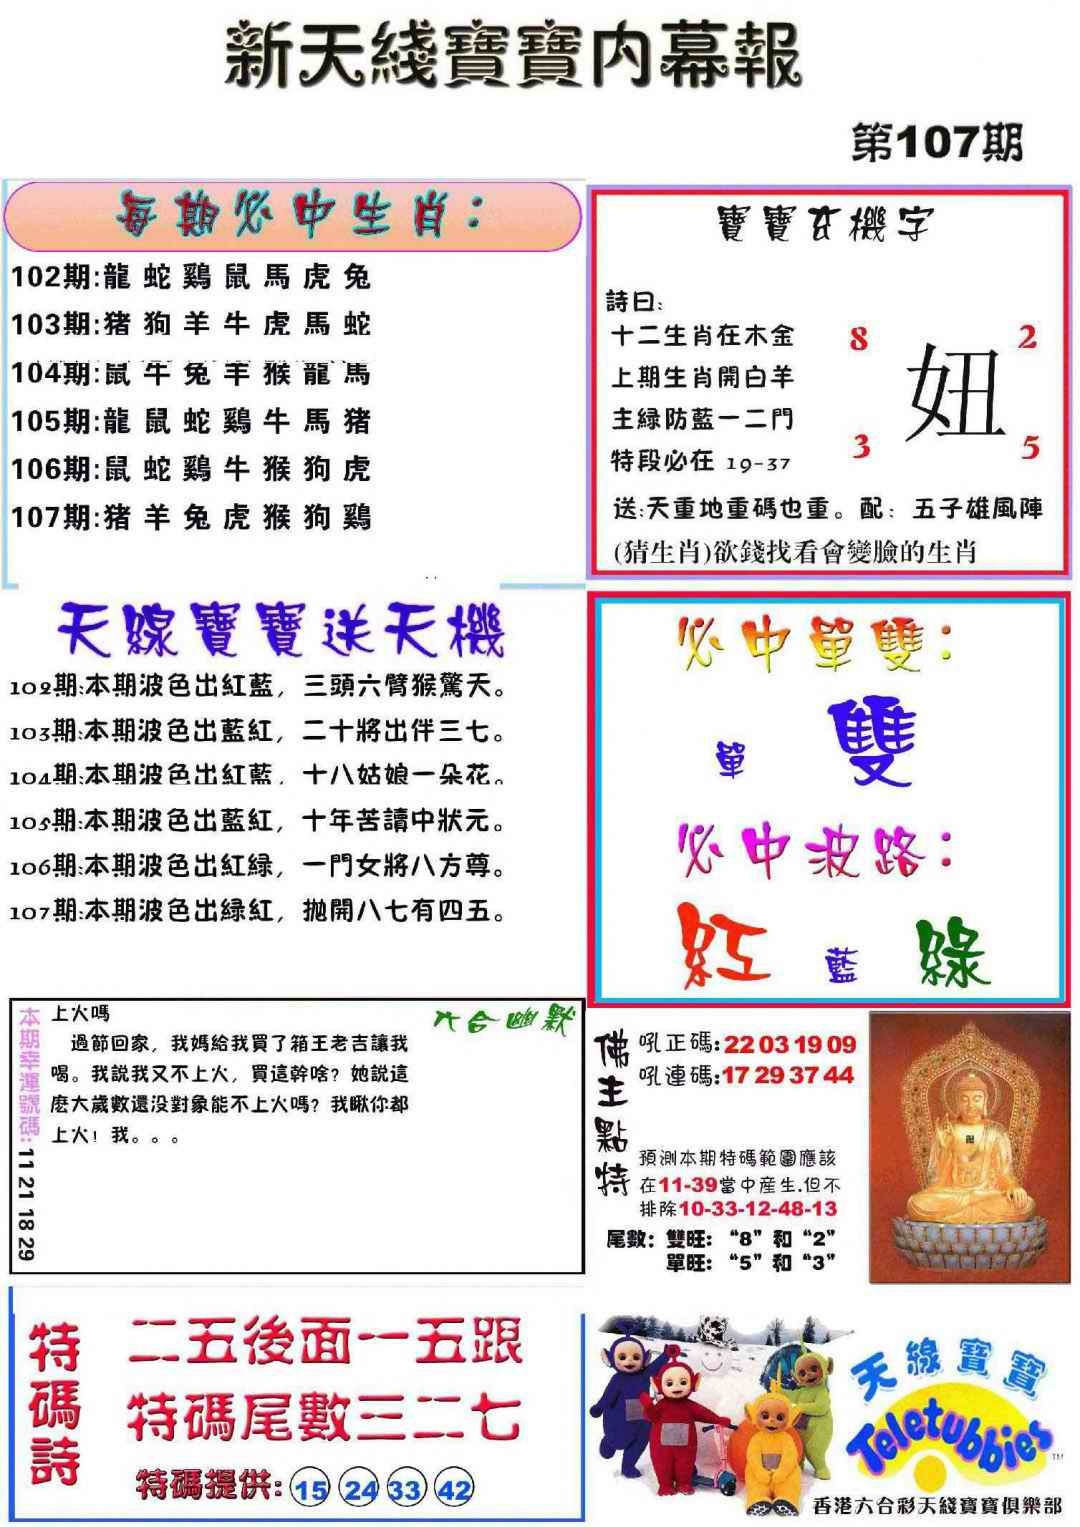 新天綫寶寶内幕報
第107期
每期必中生肖：
102期:龍 蛇 鷄 鼠 馬 虎 兔
103期:猪 狗 羊 牛 虎 馬 蛇
104期:鼠 牛 兔 羊 猴 龍 馬
105期:龍 鼠 蛇 鷄 牛 馬 猪
106期:鼠 蛇 鷄 牛 猴 狗 虎
107期:猪 羊 兔 虎 猴 狗 鷄
寶寶玄機字
詩曰:
十二生肖在木金
上期生肖開白羊
主緑防藍一二門
特段必在 19-37
8 2
妞
3 5
送:天重地重碼也重。配：五子雄風陣
(猜生肖)欲錢找看會變臉的生肖
天線寶寶送天機
102期:本期波色出紅藍，三頭六臂猴驚天。
103期:本期波色出藍紅，二十將出伴三七。
104期:本期波色出紅藍，十八姑娘一朵花。
105期:本期波色出藍紅，十年苦讀中狀元。
106期:本期波色出紅緑，一門女將八方尊。
107期:本期波色出緑紅，抛開八七有四五。
必中單雙：
單 雙
必中波路：
紅 藍 綠
本期幸運號碼:11 21 18 29
六合幽默
上火嗎
過節回家，我媽給我買了箱王老吉讓我
喝。我説我又不上火，買這幹啥？她説這
麽大歲數還没對象能不上火嗎？我瞅你都
上火！我。。。
佛主點特
吼正碼:22 03 19 09
吼連碼:17 29 37 44
預測本期特碼範圍應該
在11-39當中産生.但不
排除10-33-12-48-13
尾數：雙旺：“8”和“2”
單旺：“5”和“3”
特碼詩
二五後面一五跟
特碼尾數三二七
特碼提供: 15 24 33 42
天線寶寶
Teletubbies
TM
香港六合彩天綫寶寶俱樂部